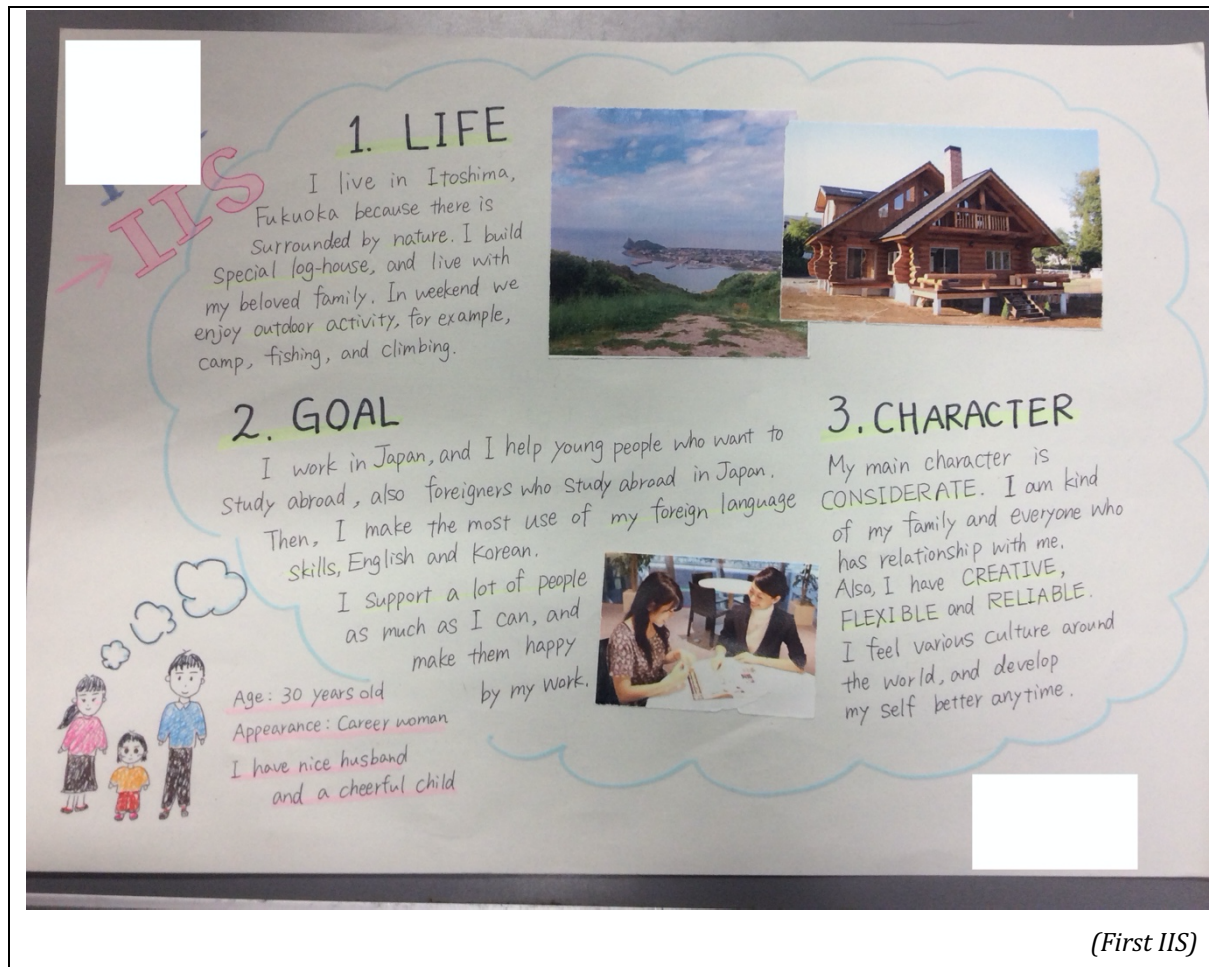 IIS
1. LIFE
I live in Itoshima,
Fukuoka because there is
surrounded by nature. I build
special log-house, and live with
my beloved family. In weekend we
enjoy outdoor activity, for example,
camp, fishing, and climbing.
2. GOAL
I work in Japan, and I help young people who want to
study abroad, also foreigners who study abroad in Japan.
Then, I make the most use of my foreign language
skills, English and Korean.
I support a lot of people
as much as I can, and
make them happy
by my work.
3. CHARACTER
My main character is
CONSIDERATE. I am kind
of my family and everyone who
has relationship with me.
Also, I have CREATIVE,
FLEXIBLE and RELIABLE.
I feel various culture around
the world, and develop
my self better anytime.
Age: 30 years old
Appearance: Career woman
I have nice husband
and a cheerful child
(First IIS)